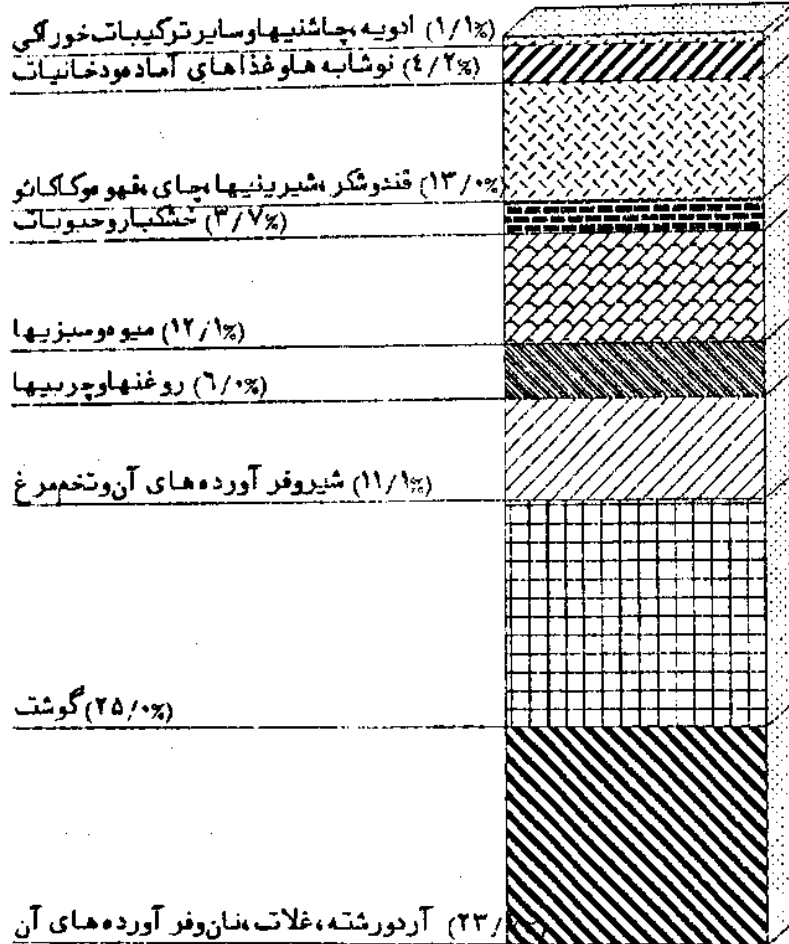 ادویه، چاشنیها و سایر ترکیبات خوراکی (۱/۱%)
نوشابه ها و غذاهای آماده و دخانیات (٤/۲%)
قندوشکر، شیرینیها، چای، قهوه و کاکائو (۱۳/۰%)
خشکبار و حبوبات (۳/۷%)
میوه و سبزیها (۱۲/۱%)
روغنها و چربیها (٦/۰%)
شیر و فرآورده های آن و تخم مرغ (۱۱/۱%)
گوشت (۲۵/۰%)
آرد و رشته، غلات، نان و فرآورده های آن (۲۳/